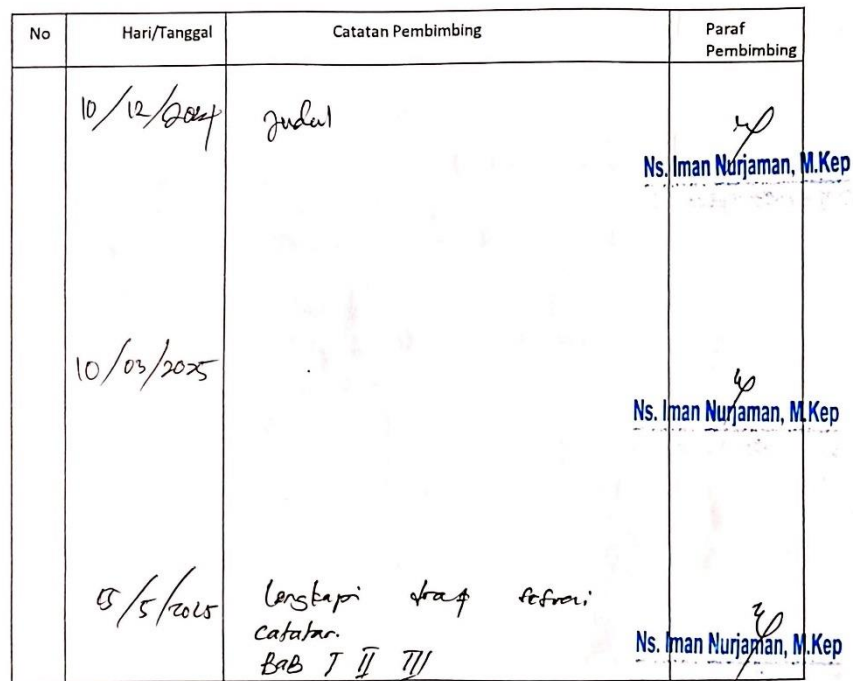 No Hari/Tanggal Catatan Pembimbing Paraf
Pembimbing
10/12/2024 Judul
Ns. Iman Nurjaman, M.Kep
10/03/2025
Ns. Iman Nurjaman, M.Kep
/5/2025 Lengkapi draf sesuai
catatan.
BAB I II III
Ns. Iman Nurjaman, M.Kep